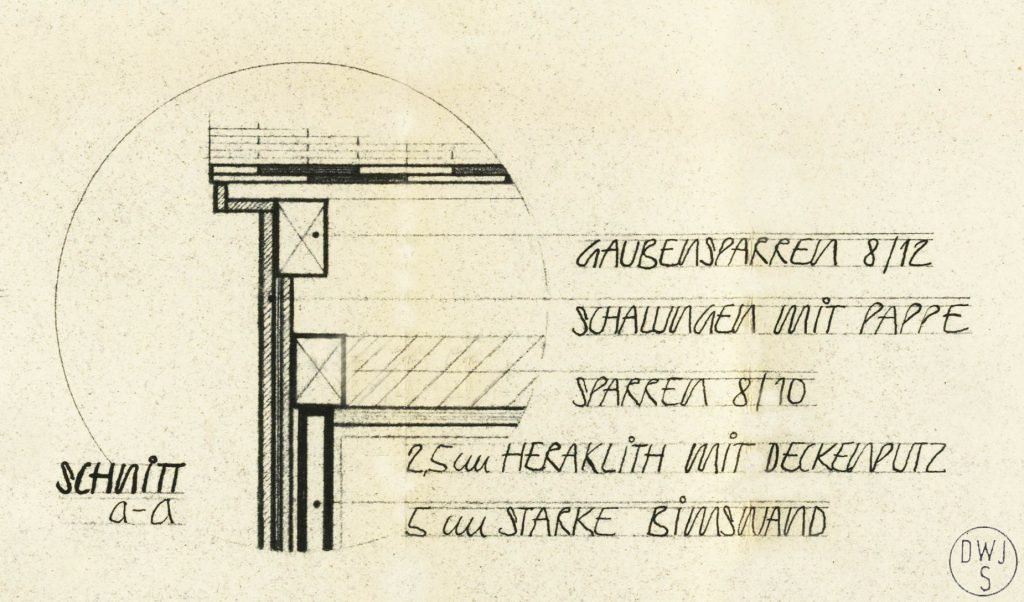 GAUBENSPARREN 8/12
SCHALUNGEN MIT PAPPE
SPARREN 8/10
2,5 cm HERAKLITH MIT DECKENPUTZ
5 cm STARKE BIMSWAND
SCHNITT
a-a
DWJ
S